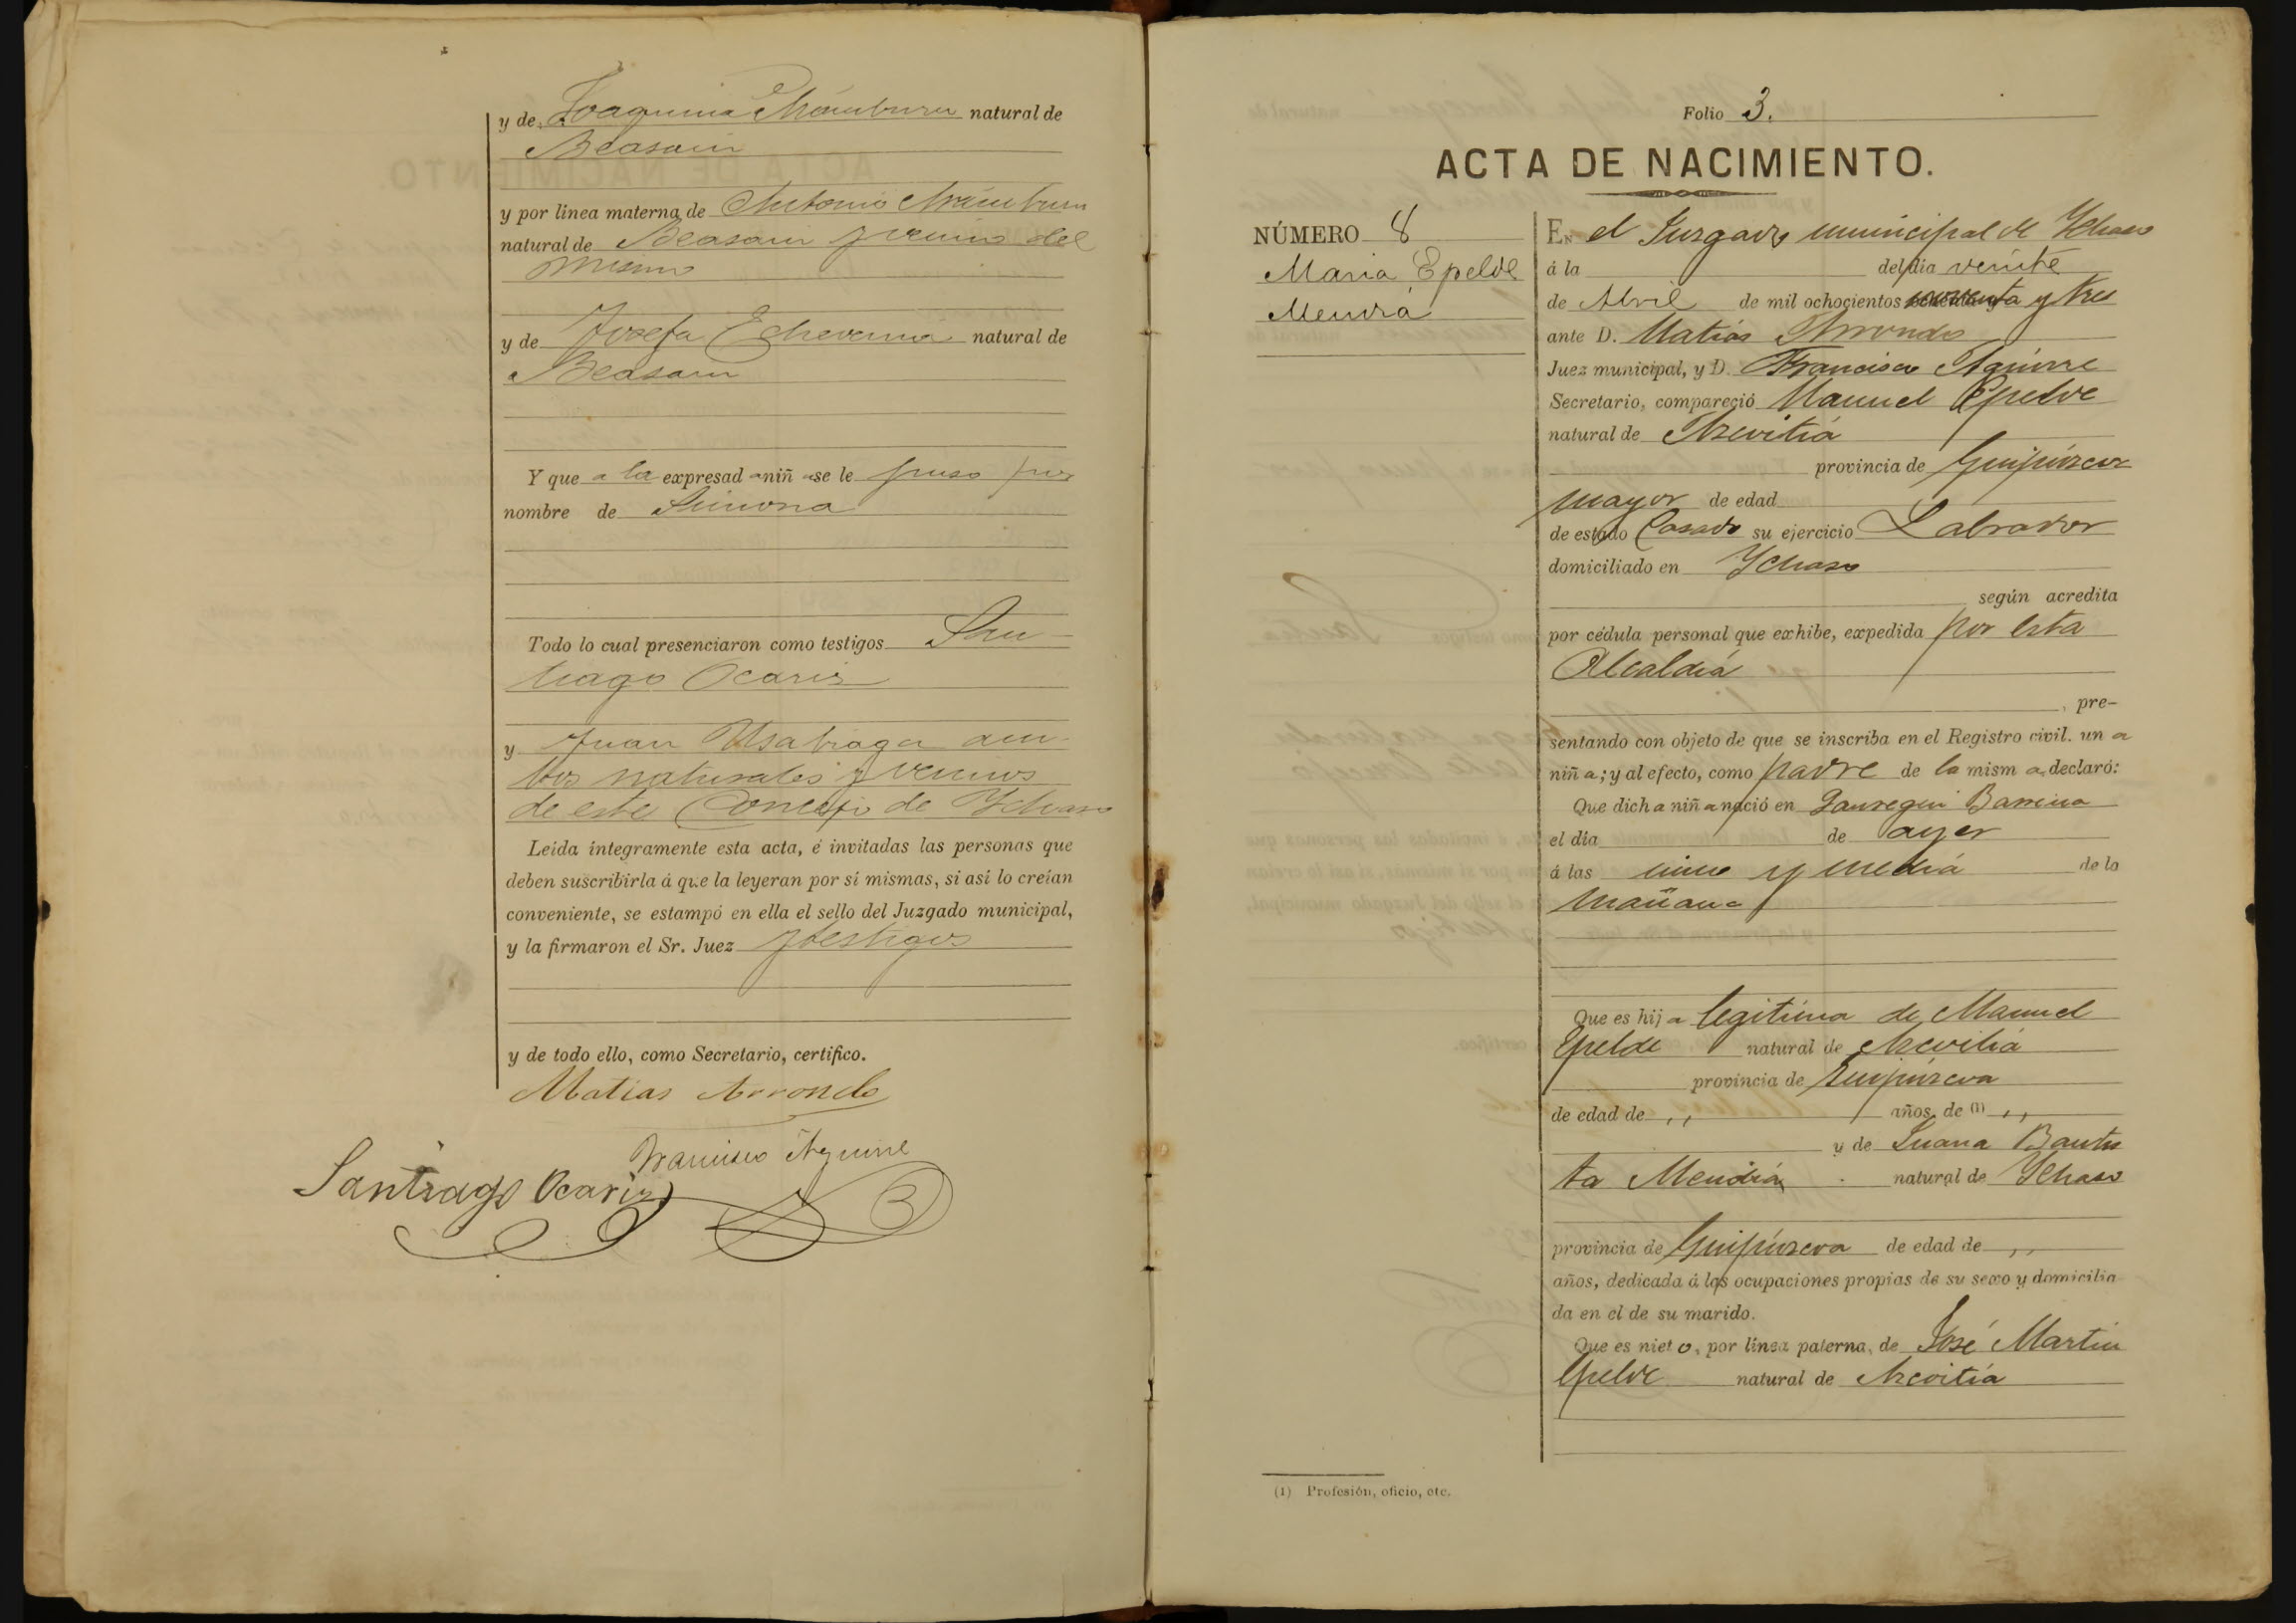 y de Joaquina Aramburu natural de
Beasain
y por línea materna de Antonio Aramburu
natural de Beasain y vecino del
mismo
y de Josefa Echeverria natural de
Beasain
Y que a la expresad a niñ a se le puso por
nombre de Simona
Todo lo cual presenciaron como testigos San-
tiago Ocariz
y Juan Usabiaga am-
bos naturales y vecinos
de este Concejo de Ychaso
Leída íntegramente esta acta, é invitadas las personas que
deben suscribirla á que la leyeran por sí mismas, si así lo creían
conveniente, se estampó en ella el sello del Juzgado municipal,
y la firmaron el Sr. Juez y testigos
y de todo ello, como Secretario, certifico.
Matias Arrondo
Francisco Aguirre
Santiago Ocariz
Folio 3.
ACTA DE NACIMIENTO.
NÚMERO 8
Maria Epelde
Mendia
En el Juzgado municipal de Ychaso
á la del dia veinte
de Abril de mil ochocientos noventa y tres
ante D. Matias Arrondo
Juez municipal, y D. Francisco Aguirre
Secretario, compareció Manuel Epelde
natural de Azcoitia
provincia de Guipúzcoa
mayor de edad
de estado Casado su ejercicio Labrador
domiciliado en Ychaso
según acredita
por cédula personal que exhibe, expedida por esta
Alcaldia
, pre-
sentando con objeto de que se inscriba en el Registro civil. un a
niñ a; y al efecto, como padre de la mism a declaró:
Que dich a niñ a nació en Jauregui Barrena
el día de ayer
á las y media de la
mañana
Que es hij a legitima de Manuel
Epelde natural de Azcoitia
provincia de Guipúzcoa
de edad de ,, años, de (1) ,,
y de Juana Bautis
ta Mendia natural de Ychaso
provincia de Guipúzcoa de edad de ,,
años, dedicada á las ocupaciones propias de su sexo y domicilia
da en el de su marido.
Que es niet o, por línea paterna, de José Martin
Epelde natural de Azcoitia
(1) Profesión, oficio, etc.